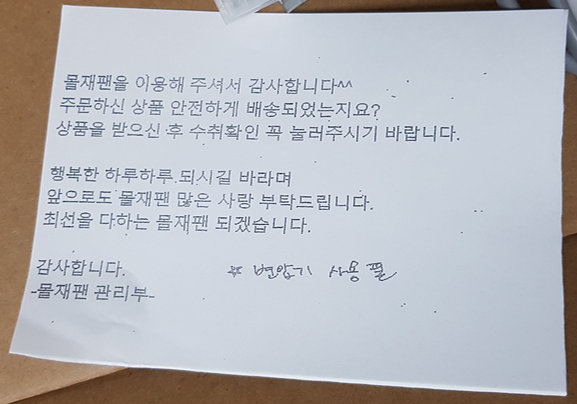 몰재팬을 이용해 주셔서 감사합니다^^
주문하신 상품 안전하게 배송되었는지요?
상품을 받으신 후 수취확인 꼭 눌러주시기 바랍니다.
행복한 하루하루 되시길 바라며
앞으로도 몰재팬 많은 사랑 부탁드립니다.
최선을 다하는 몰재팬 되겠습니다.
감사합니다.
# 변압기 사용 필
-몰재팬 관리부-